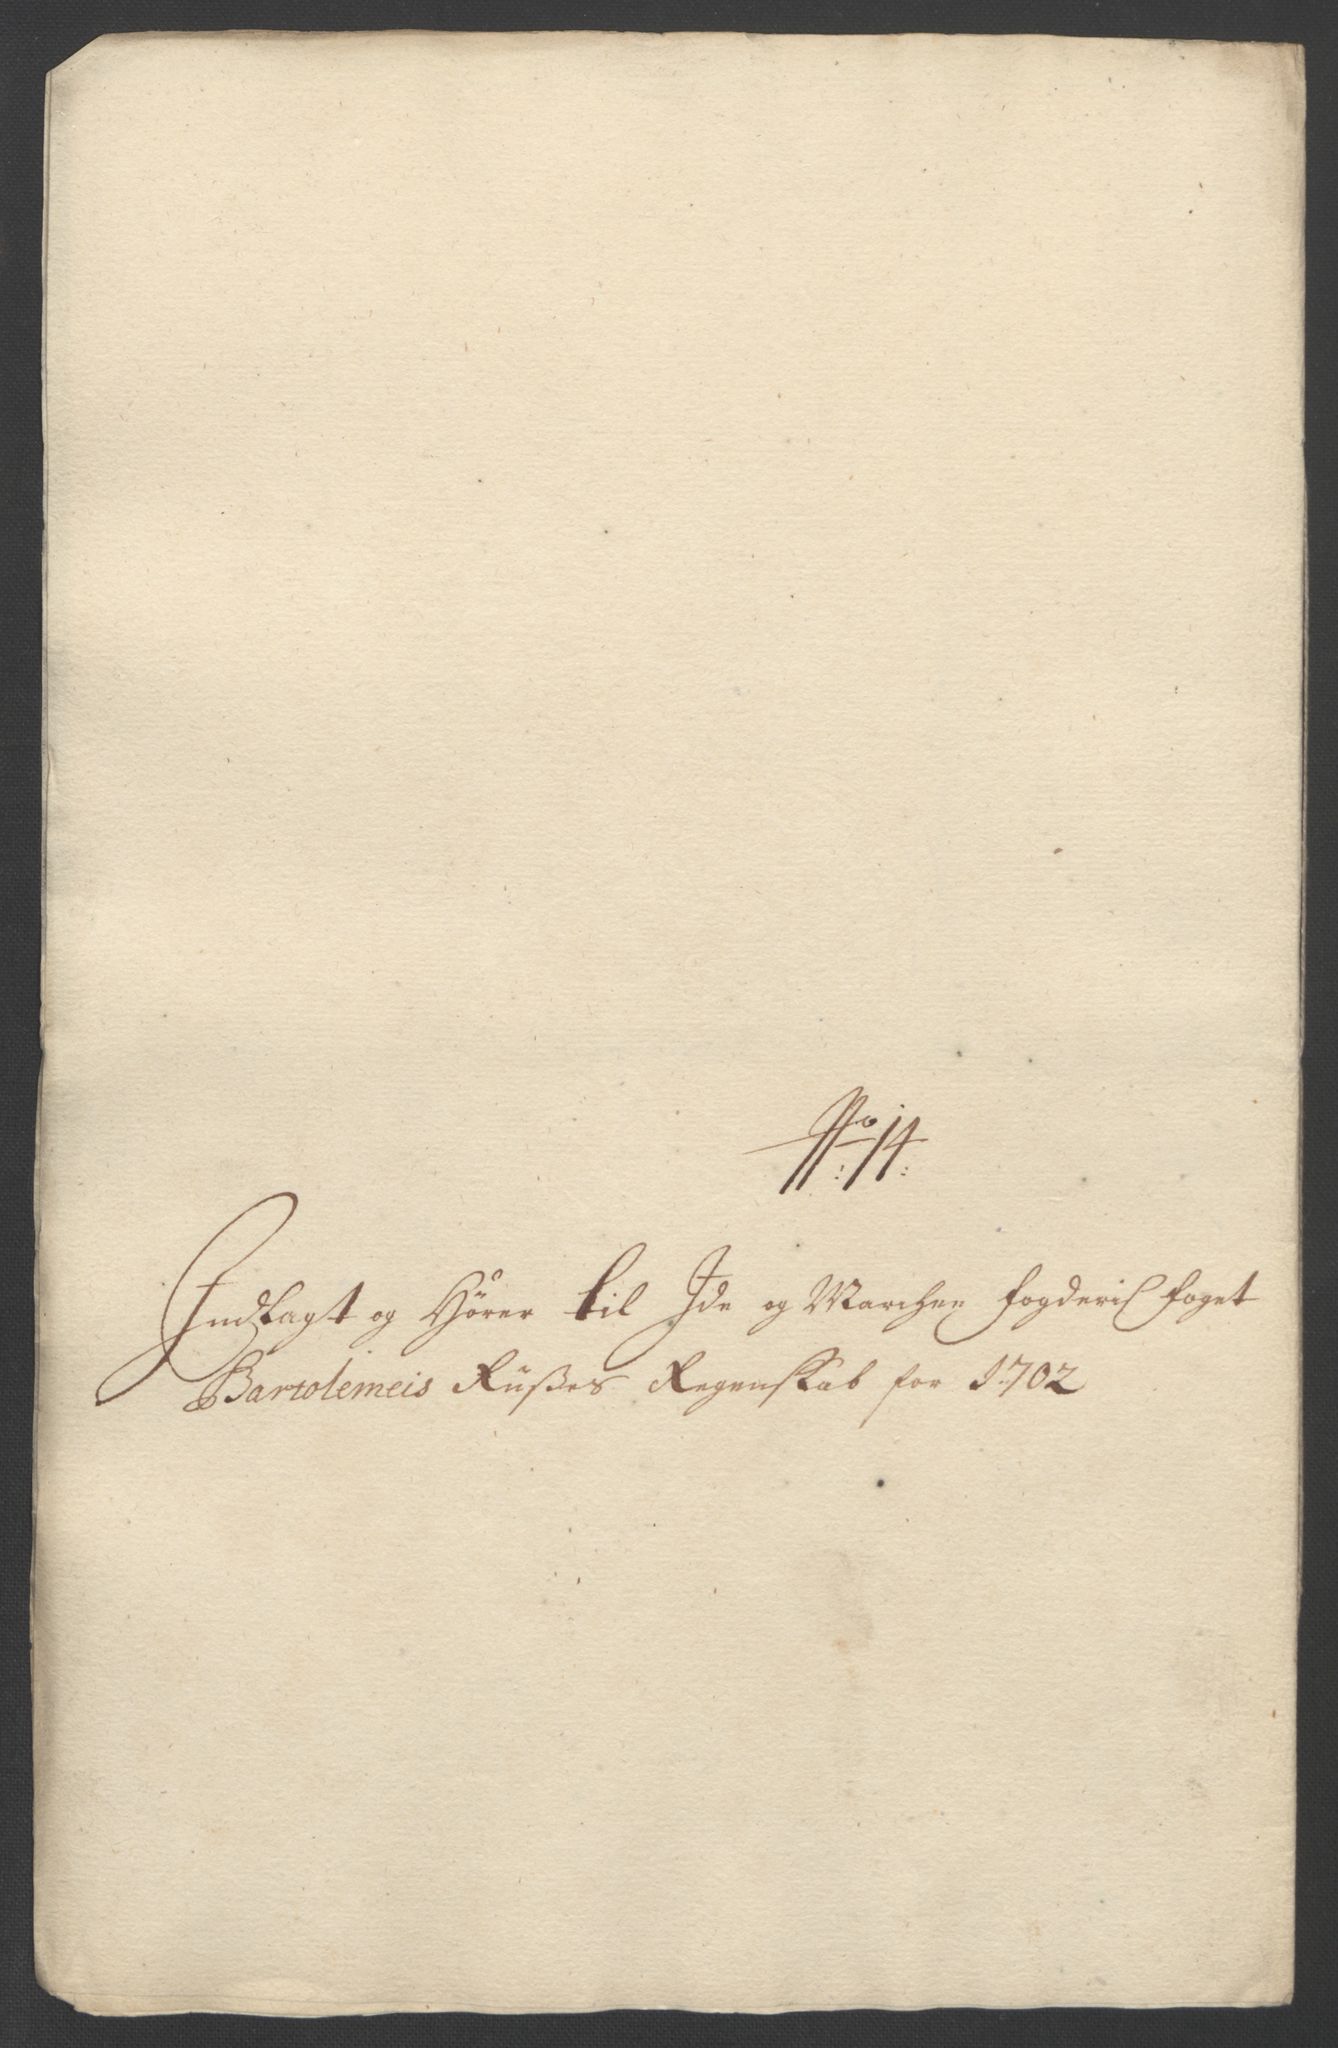 No: 14:
Indlagt og Hører til Ide og Marchen fogderi foget
Bartolemeis Rüsses Regenskab for 1702